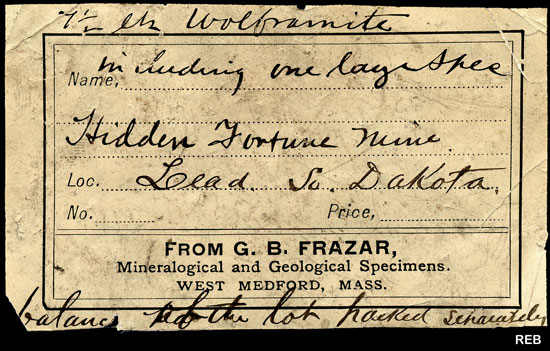 7½ lbs Wolframite
Name, including one large Spec
Hidden Fortune Mine.
Loc. Lead. So. Dakota.
No. Price,
FROM G. B. FRAZAR,
Mineralogical and Geological Specimens.
WEST MEDFORD, MASS.
balance of the lot packed separately
REB